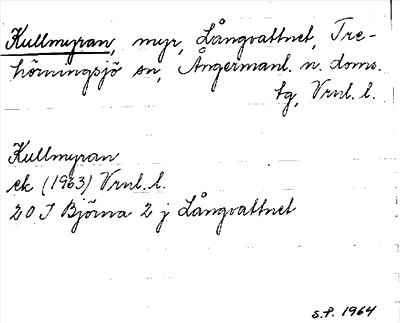 Kullmyran, myr, Långvattnet, Tre-
hörningsjö sn, Ångermanl. n. doms.
tg, Vrnl. l.
Kullmyran
ek (1963) Vrnl. l.
20 I Björna 2 j Långvattnet
S.P. 1964